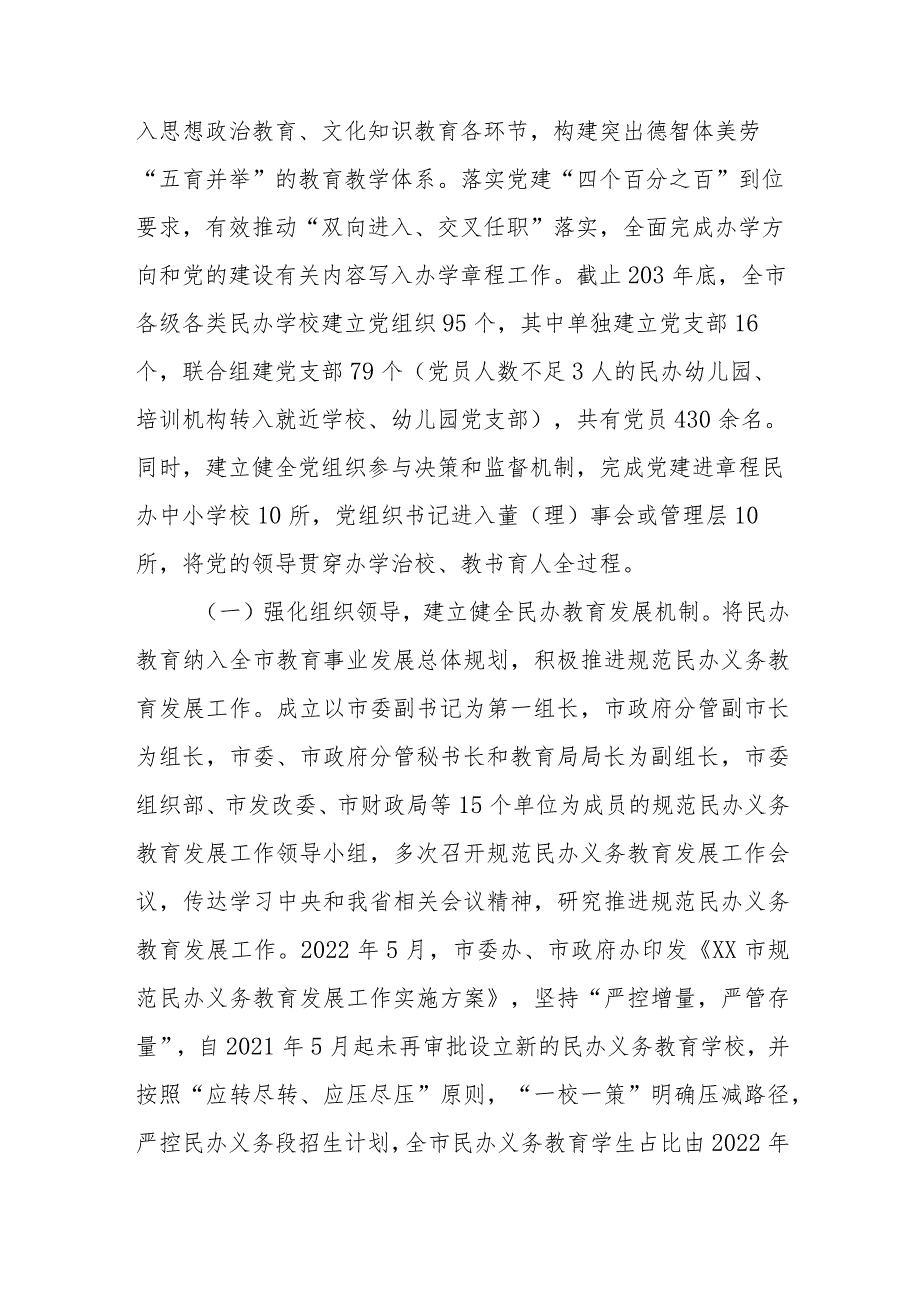 入思想政治教育、文化知识教育各环节，构建突出德智体美劳
“五育并举”的教育教学体系。落实党建“四个百分之百”到位
要求，有效推动“双向进入、交叉任职”落实，全面完成办学方
向和党的建设有关内容写入办学章程工作。截止 203 年底，全市
各级各类民办学校建立党组织 95 个，其中单独建立党支部 16
个，联合组建党支部 79 个（党员人数不足 3 人的民办幼儿园、
培训机构转入就近学校、幼儿园党支部），共有党员 430 余名。
同时，建立健全党组织参与决策和监督机制，完成党建进章程民
办中小学校 10 所，党组织书记进入董（理）事会或管理层 10
所，将党的领导贯穿办学治校、教书育人全过程。
（一）强化组织领导，建立健全民办教育发展机制。将民办
教育纳入全市教育事业发展总体规划，积极推进规范民办义务教
育发展工作。成立以市委副书记为第一组长，市政府分管副市长
为组长，市委、市政府分管秘书长和教育局局长为副组长，市委
组织部、市发改委、市财政局等 15 个单位为成员的规范民办义务
教育发展工作领导小组，多次召开规范民办义务教育发展工作会
议，传达学习中央和我省相关会议精神，研究推进规范民办义务
教育发展工作。2022 年 5 月，市委办、市政府办印发《XX 市规
范民办义务教育发展工作实施方案》，坚持“严控增量，严管存
量”，自 2021 年 5 月起未再审批设立新的民办义务教育学校，并
按照“应转尽转、应压尽压”原则，“一校一策”明确压减路径，
严控民办义务段招生计划，全市民办义务教育学生占比由 2022 年